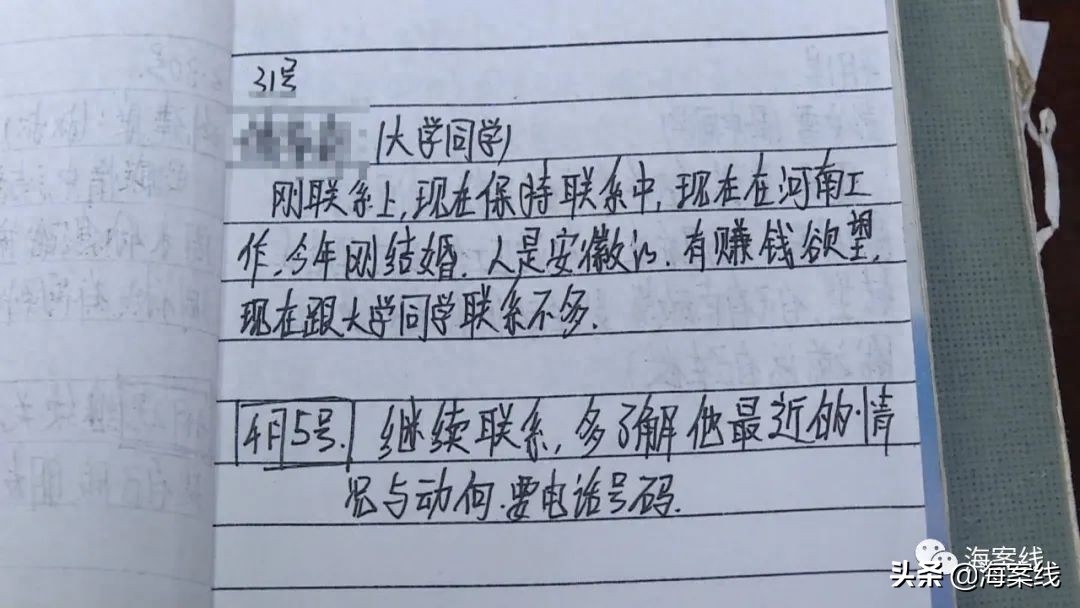 31号
(大学同学)
刚联系上,现在保持联系中,现在在河南工
作,今年刚结婚.人是安徽的.有赚钱欲望,
现在跟大学同学联系不多.
4月5号. 继续联系,多了解他最近的情
况与动向.要电话号码.
海案线
头条 @海案线